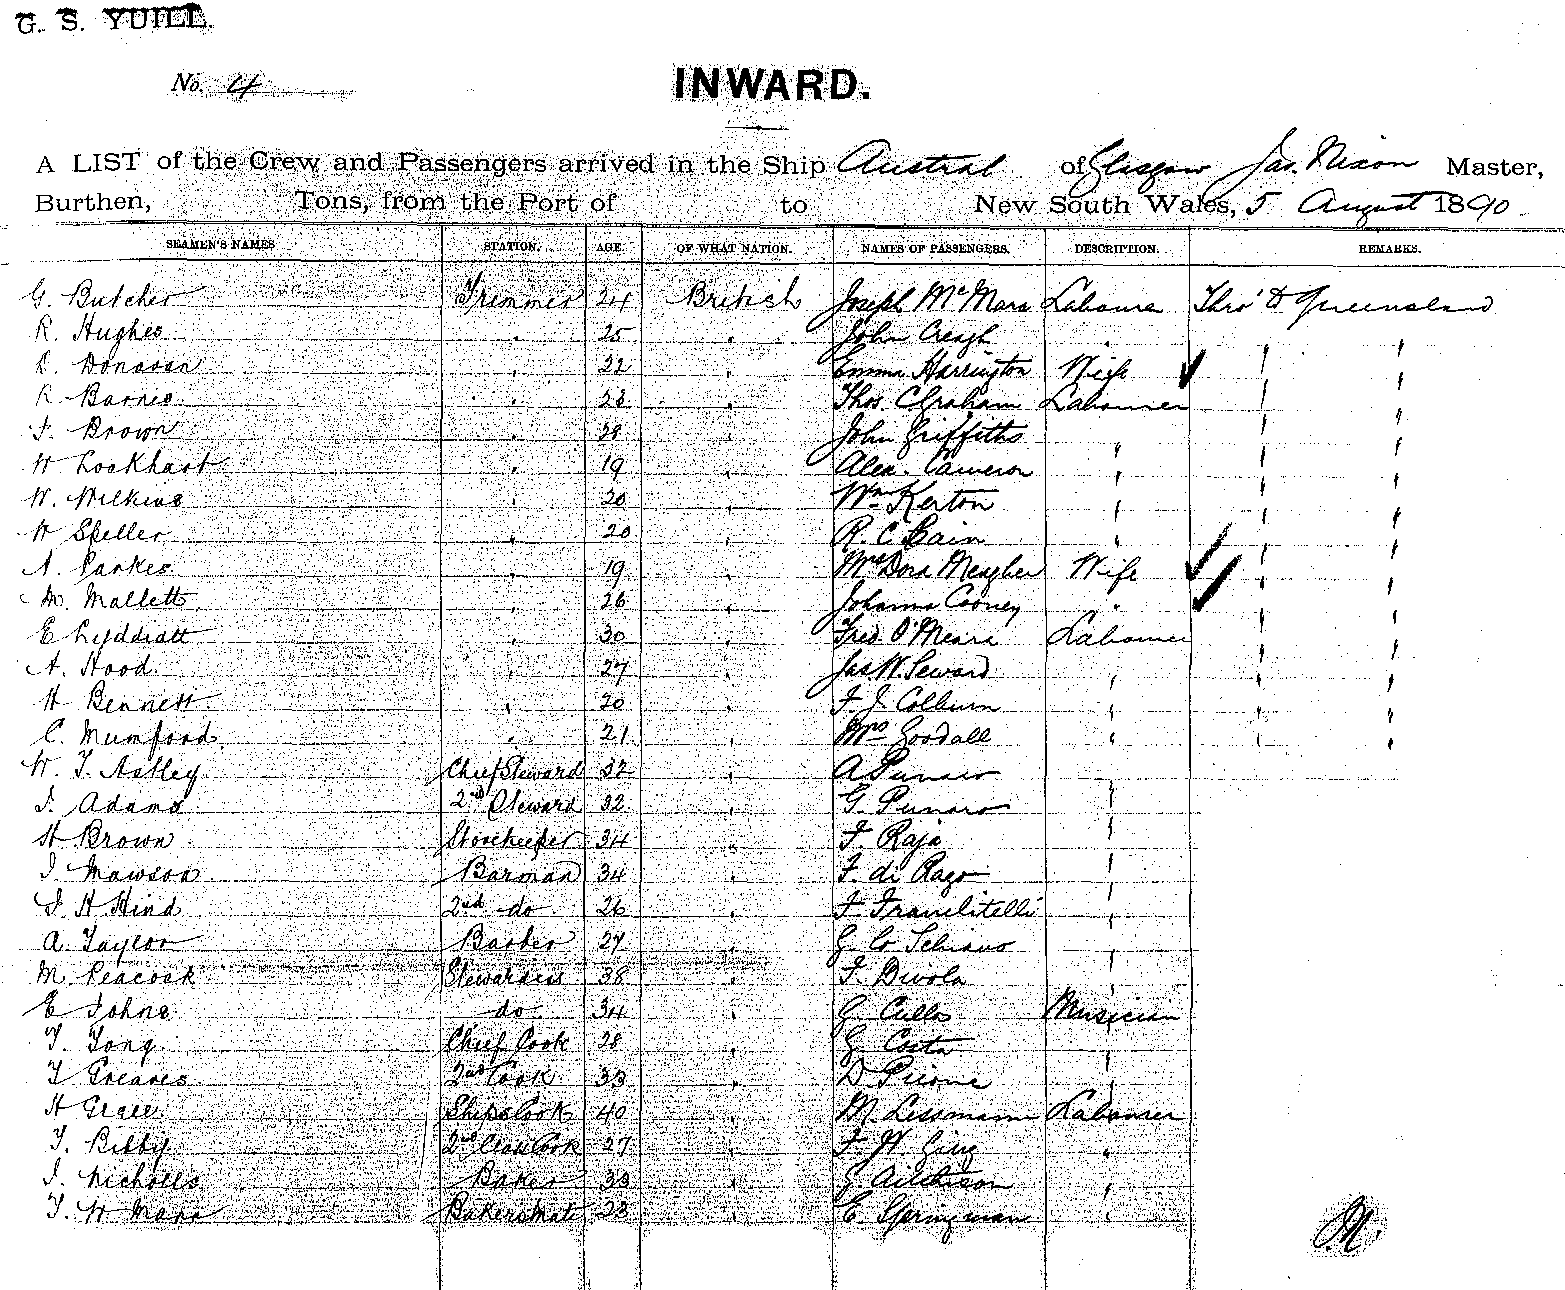 G. S. YUILL.
No. 4
INWARD.
A LIST of the Crew and Passengers arrived in the Ship Austral of Glasgow Jas. Nixon Master,
Burthen, Tons, from the Port of to New South Wales, 5 August 1890
SEAMEN'S NAMES STATION. AGE OF WHAT NATION. NAMES OF PASSENGERS. DESCRIPTION. REMARKS.
G. Butcher Trimmer 24 British Joseph McMara Labourer Thro' to Queensland
R. Hughes " 25 " John Creagh "
D. Donovan " 22 " Emma Harrington Wife
R Barnes " 23 " Thos. Graham Labourer
F. Brown " 28 " John Griffiths "
W Lockhart " 19 " Alex. Cameron "
W. Wilkins " 20 " Wm Kerton "
H Speller " 20 " R. C Bain "
A. Parkes " 19 " Mrs Dora Meagher Wife
M. Mallett " 26 " Johanna Cooney "
E Lyddiatt " 30 " Fred O'Meara Labourer
A. Hood " 27 " Jas W. Seward "
H Bennett " 20 " F. J. Colburn "
C. Mumford " 21 " Mrs Goodall "
W. T. Astley Chief Steward 32 " A Punaro
J. Adams 2nd Steward 32 " G. Punaro "
H Brown Storekeeper 34 " F. Raja "
J. Mawson Barman 34 " F. di Rago "
J. H Hind 2nd do 26 " F.
A. Taylor Barber 27 " G. Lo Schiavo "
M. Peacock Stewardess 38 " F. Divola "
E Johns do 34 " G. Cullo Musician
T. Tong Chief Cook 28 " G. Costa "
T Greaves 2nd Cook 33 " D Picone "
H Grace Ships Cook 40 " M. Lessmann Labourer
T. Bibby 2nd Class Cook 27 " F. W. Ging "
J. Nicholls Baker 33 " G Aitchison
T. W Mann Bakers Mate 23 " E. Springman "
M.